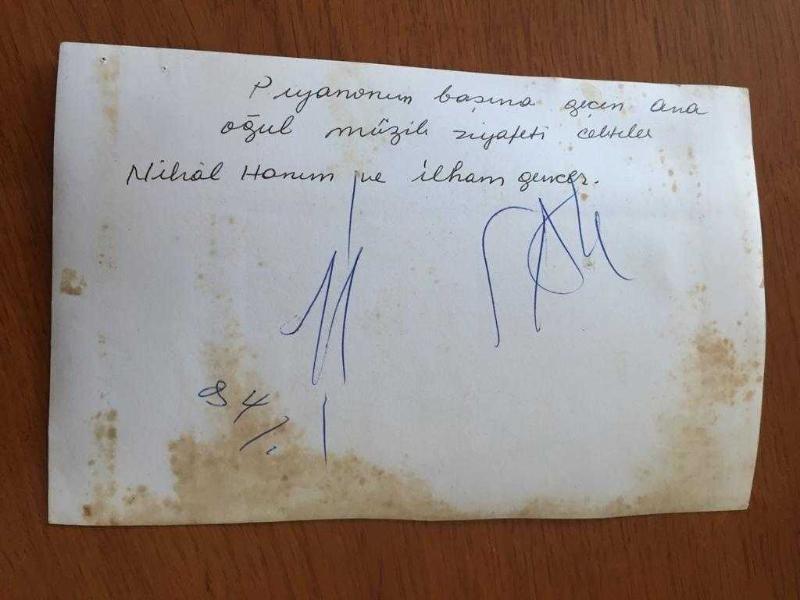 Piyanonun başına geçen ana
oğul müzik ziyafeti çektiler
Nihâl Hanım ve ilham gencer.
84